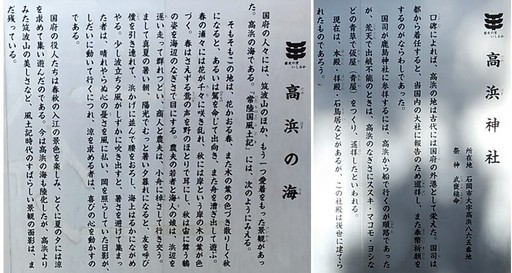 高浜神社
所在地 石岡市大字高浜八六五番地
祭神 武甕槌命
口碑によれば、高浜の地は古代には国府の外港として栄えた。国司は
都から着任すると、当国内の大社に報告のため巡拝し、また奉幣祈願を
するのがならわしであった。
国司が鹿島神社に参拝するには、高浜から船で行くのが順路であった
が、荒天で出航不能のときは、高浜のなぎさにススキ・マコモ・ヨシな
どの青草で仮屋(青屋)をつくり、遥拝したといわれる。
現在は、本殿、拝殿、石鳥居などがあるが、この社殿は後世に建てら
れたものであろう。
高浜の海
国府の人々には、筑波山のほか、もう一つ愛着をもった景観があっ
た。高浜の海である。「常陸国風土記」には、次のようにみえる。
そもそもこの地は、花かおる春、また木の葉の色づき散りしく秋
になると、あるいは駕を命じて出向き、また舟を漕いで出て遊ぶ。
春の浦々には花が千々に咲き乱れ、秋には岸という岸の木の葉が色
づく。春はさえずる鶯の声を野のほとりで耳にし、秋は宙に舞う鶴
の姿を海辺のなぎさで目にする。農夫の若者と海人の娘は、浜辺を
逐い走って群れつどい、商人と農夫は、小舟に棹さして行き交う。
まして真夏の暑い朝、陽光でむっと暑い夕暮れになると、友を呼び
僕を引き連れて、浜かげに並んで腰をおろし、海上はるかにながめ
やる。少し波立ち夕風がしずかに吹き出すと、暑さを避けて集まっ
た者は、晴れやらぬ心の憂さを風に払い、岡を照らしていた日影が、
しだいに動いて行くにつれ、涼を求める者は、喜びの心を動かすの
である。
国府の役人たちは春秋の入江の景色を楽しみ、とくに夏の夕には涼
を求めて集い遊んだのである。今は高浜の海も陸化したが、高浜より
みた筑波山の美しさなど、風土記時代のすばらしい景観の面影は、ま
だ残っている。